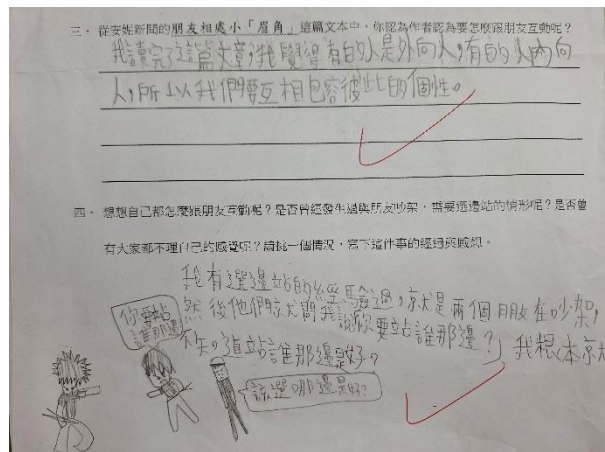 三、從安妮新聞的朋友相處小「眉角」這篇文本中，你認為作者認為要怎麼跟朋友互動呢？
我讀完了這篇文章，我覺得有的人是外向人，有的人內向
人，所以我們要互相包容彼此的個性。
四、想想自己都怎麼跟朋友互動呢？是否曾經發生過與朋友吵架，需要選邊站的情形呢？是否曾
有大家都不理自己的感覺呢？請挑一個情況，寫下這件事的經過與感想。
我有選邊站的經驗過，就是兩個朋友在吵架，
然後他們就問我說你要站誰那邊？」我想本京
不知道站誰那邊是好。
你要站
誰那邊
該選哪邊是好？